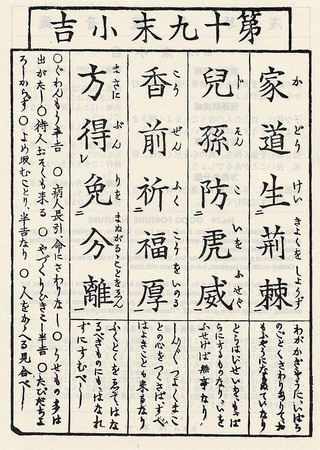 第十九末小吉
家道生荊棘
かどう けいきよくをしようず
兒孫防虎威
じそん こいをふせぐ
香前祈福厚
こうぜん ふくこうをいのる
方得免分離
まさに ぶんりをまぬがるることをゑん
わがかぎやうに、いばら
のごとくさわりありて
もふやうに ていなり
とらは せいをもつば
らにするものなり、いを
ふせけば無事なり
しん〴〵つよくまこ
との心をつくさばすへ
はよきことも来るなり
ふくとくをゑてはな
るべきものにもはなれ
ずにすむべし
○ぐわんもう半吉 ○病人長引、命にさわりなし ○うせもの多は
出がたし ○待人おそくも来る ○やづくりひきこし半吉 ○たびだちよ
ろしからず ○よめ取むことり、半吉なり ○人をかゝへる見合べし